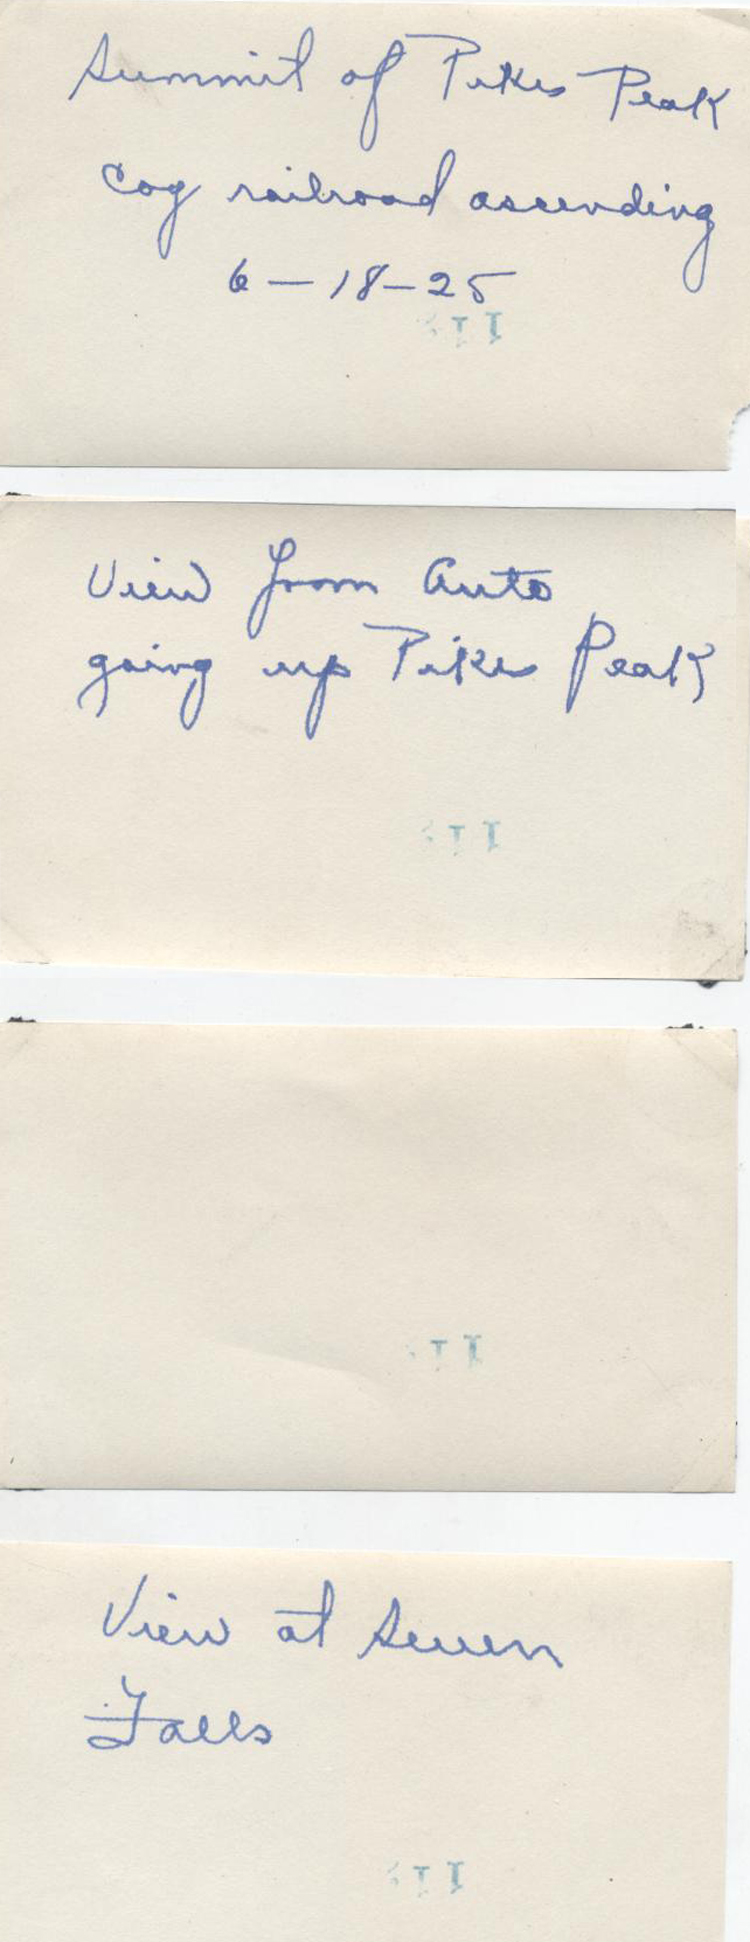 Summit of Pikes Peak
Cog railroad ascending
6-18-25
View from Auto
going up Pikes Peak
View at Seven
Falls